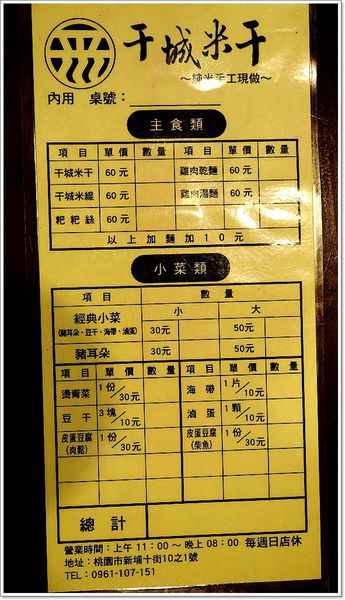 干城米干
～純米手工現做～
內用 桌號：
主食類
項目 單價 數量 項目 單價 數量
干城米干 60元 雞肉乾麵 60元
干城米線 60元 雞肉湯麵 60元
粑粑絲 60元
以上加麵加10元
小菜類
項目 數量
小 大
經典小菜
(豬耳朵、豆干、海帶、滷蛋) 30元 50元
豬耳朵 30元 50元
項目 單價 數量 項目 單價 數量
燙青菜 1份/30元 海帶 1片/10元
豆干 3塊/10元 滷蛋 1顆/10元
皮蛋豆腐(肉鬆) 1份/30元 皮蛋豆腐(柴魚) 1份/30元
總計
營業時間：上午11：00～晚上08：00 每週日店休
地址：桃園市新埔十街10之1號
TEL：0961-107-151